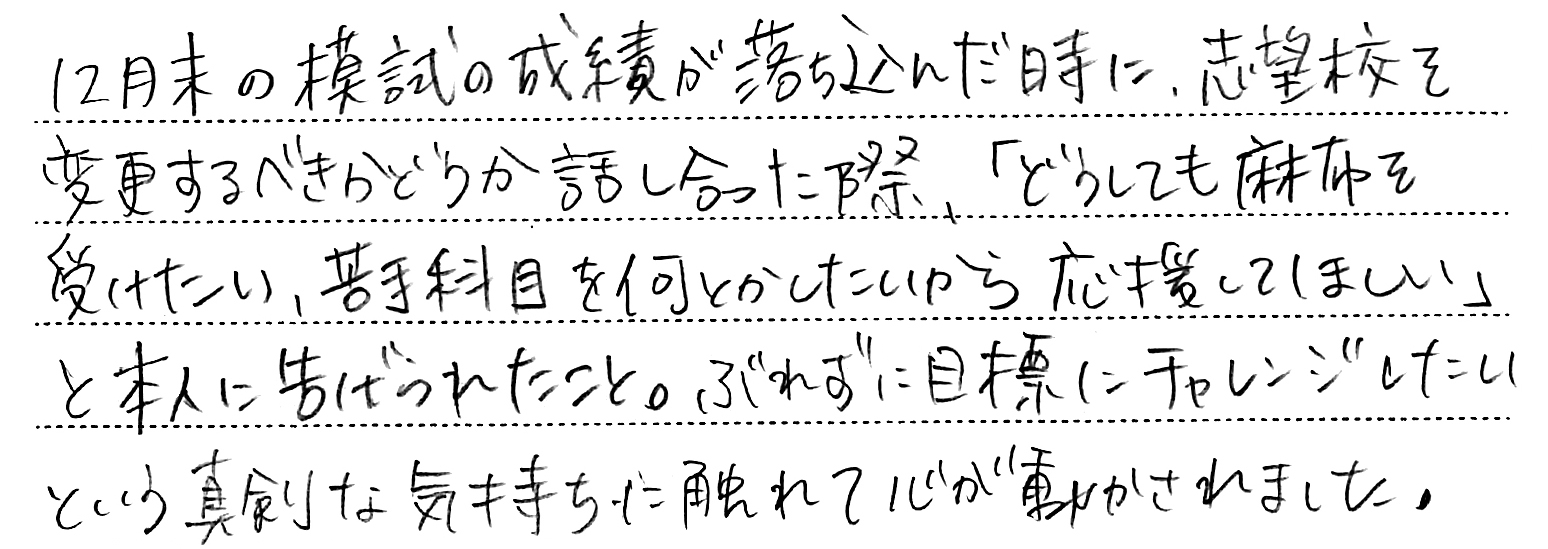 12月末の模試の成績が落ち込んだ時に、志望校を
変更するべきかどうか話し合った際、「どうしても麻布を
受けたい、苦手科目を何とかしたいから応援してほしい」
と本人に告げられたこと。ぶれずに目標にチャレンジしたい
という真剣な気持ちに触れて心が動かされました。